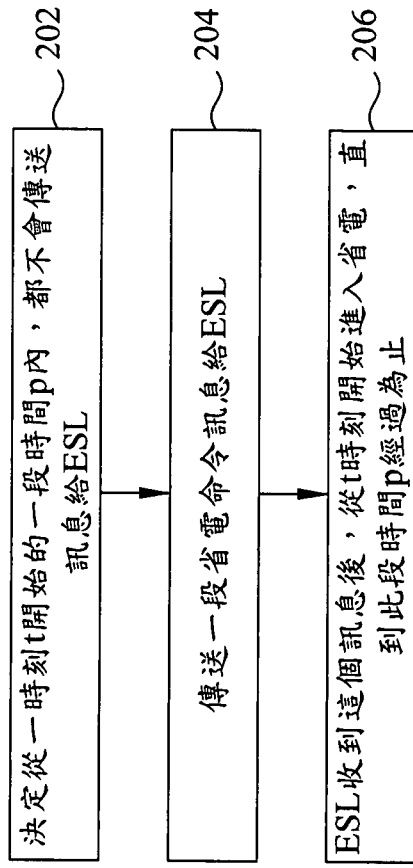 決定從一時刻t開始的一段時間p內，都不會傳送
訊息給ESL
202
傳送一段省電命令訊息給ESL
204
ESL收到這個訊息後，從t時刻開始進入省電，直
到此段時間p經過為止
206